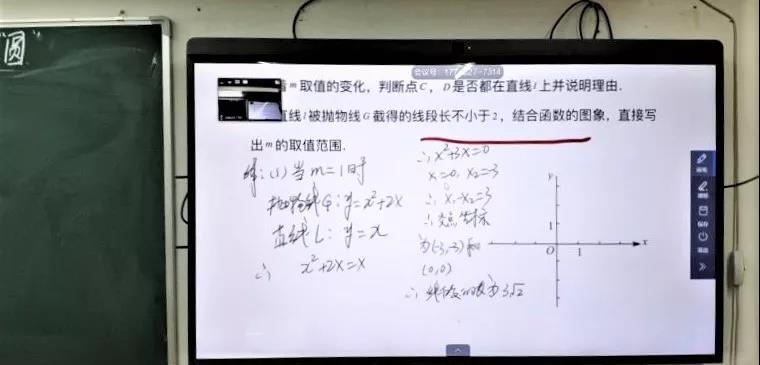 圆
会议号：
着m取值的变化，判断点C，D是否都在直线l上并说明理由．
直线l被抛物线G截得的线段长不小于2，结合函数的图象，直接写
出m的取值范围．
解：(1)当m=1时
抛物线G：y=x²+2x
直线L：y=x
∴ x²+2x=x
∴x²+3x=0
x=0, x₂=-3
∴x₁-x₂=3
∴交点坐标
为(-3,-3)和
(0,0)
∴线段的长为3√2
y
1
O
1
x